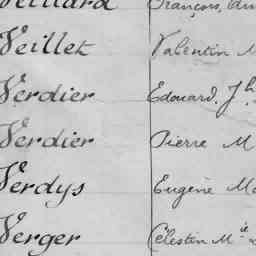 Veillard François,
Veillet Valentin M
Verdier Edouard. Jh
Verdier Pierre M
Verdys Eugène Ma
Verger Célestin Mie